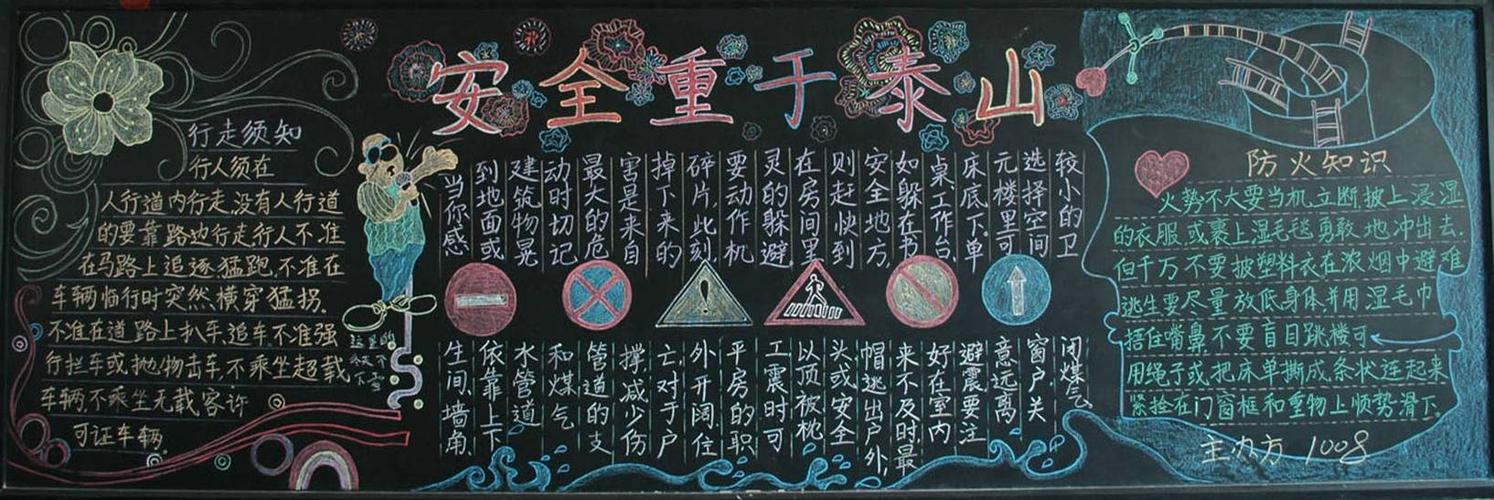 安全重于泰山
行走须知
行人须在
人行道内行走,没有人行道
的要靠路边行走行人不准
在马路上追逐猛跑.不准在
车辆临行时突然横穿猛拐.
不准在道路上扒车.追车.不准强
行拦车或抛物击车不乘坐超载
车辆不乘坐无载客许
可证车辆
这里的
冬天不
下雪
当你感
到地面或
建筑物晃
动时切记
最大的危
害是来自
掉下来的
碎片,此刻
要动作机
灵的躲避
在房间里
则赶快到
安全地方,
如躲在书
桌、工作台、
床底下.单
元楼里可
选择空间
较小的卫
生间、墙角、
依靠上下
水管道
和煤气
管道的支
撑,减少伤
亡对于户
外开阔住
平房的职
工震时可
以顶被枕
头或安全
帽逃出户外,
来不及时最
好在室内
避震要注
意远离
窗户,关
闭煤气
防火知识
火势不大要当机立断披上浸湿
的衣服.或裹上湿毛毯勇敢地冲出去.
但千万不要披塑料衣在浓烟中避难
逃生要尽量放低身体,并用湿毛巾
捂住嘴鼻.不要盲目跳楼可
用绳子或把床单撕成条状连起来
紧拴在门窗框和重物上顺势滑下.
主办方 1008